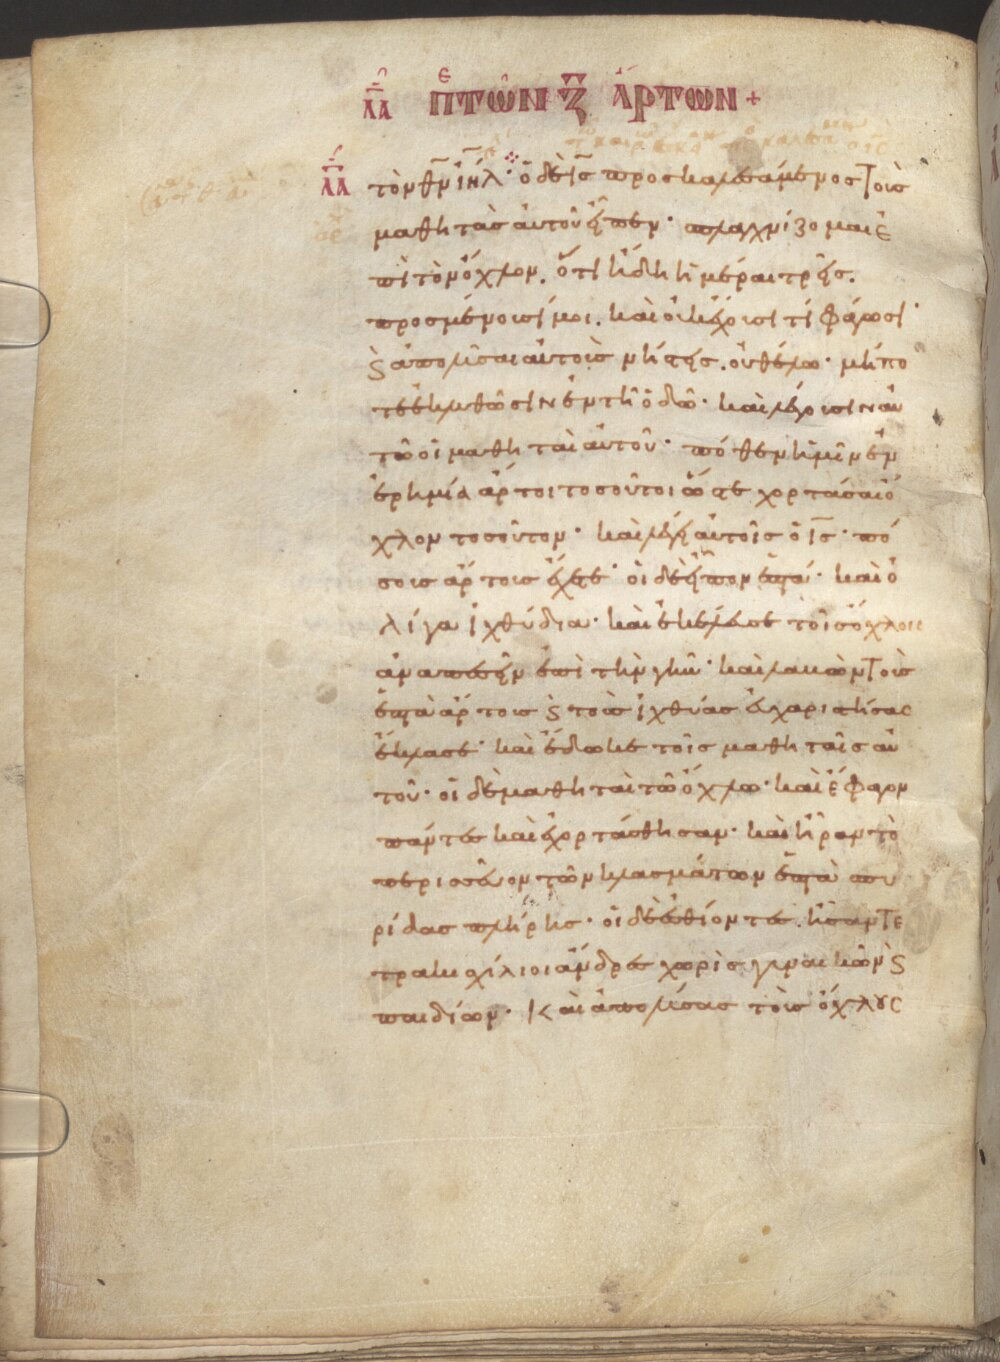 ΛΔ πε τῶν ζ ἄρτων +
ΛΔ
τὸν θν ιηλ· ὁ δὲ ις προσκαλεσάμενος τοὺς
μαθητὰς αὐτοῦ εἶπεν· σπλαγχνίζομαι ἐ
πὶ τὸν ὄχλον. ὅτι ἤδη ἡμέραι τρεῖς.
προσμένουσί μοι. καὶ οὐκ ἔχουσι τί φάγωσι·
ϗ ἀπολῦσαι αὐτοὺς νήστεις. οὐ θέλω· μήπο
τε ἐκλυθῶσιν ἐν τῆ ὁδῶ· καὶ λέγουσιν αὐ
τῶ οἱ μαθηταὶ αὐτοῦ· πόθεν ἡμῖν ἐν
ἐρημία ἄρτοι τοσοῦτοι ὥστε χορτάσαι ὄ
χλον τοσοῦτον· καὶ λέγει αὐτοῖς ὁ ις· πό
σους ἄρτους ἔχετε· οἱ δὲ εἶπον ἑπτά· καὶ ὀ
λίγα ἰχθύδια· καὶ ἐκέλευσε τοῖς ὄχλοις
ἀναπεσεῖν ἐπὶ τὴν γῆν· καὶ λαβὼν τοὺς
ἑπτὰ ἄρτους ϗ τοὺς ἰχθύας εὐχαριστήσας
ἔκλασε· καὶ ἔδωκε τοῖς μαθηταῖς αὐ
τοῦ· οἱ δὲ μαθηταὶ τῶ ὄχλω· καὶ ἔφαγον
πάντες καὶ ἐχορτάσθησαν· καὶ ἦραν τὸ
περισσεῦον τῶν κλασμάτων ἑπτὰ σπυ
ρίδας πλήρης· οἱ δὲ ἐσθίοντες. ἦσαν τε
τρακισχίλιοι ἄνδρες χωρὶς γυναικῶν ϗ
παιδίων· Καὶ ἀπολύσας τοὺς ὄχλους